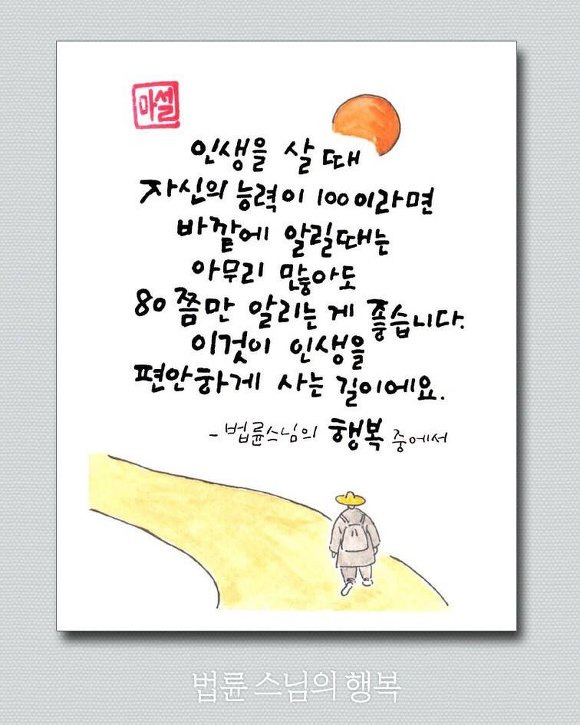 마설
인생을 살 때
자신의 능력이 100이라면
바깥에 알릴때는
아무리 많아도
80쯤만 알리는 게 좋습니다.
이것이 인생을
편안하게 사는 길이에요.
- 법륜스님의 행복 중에서
법륜 스님의 행복